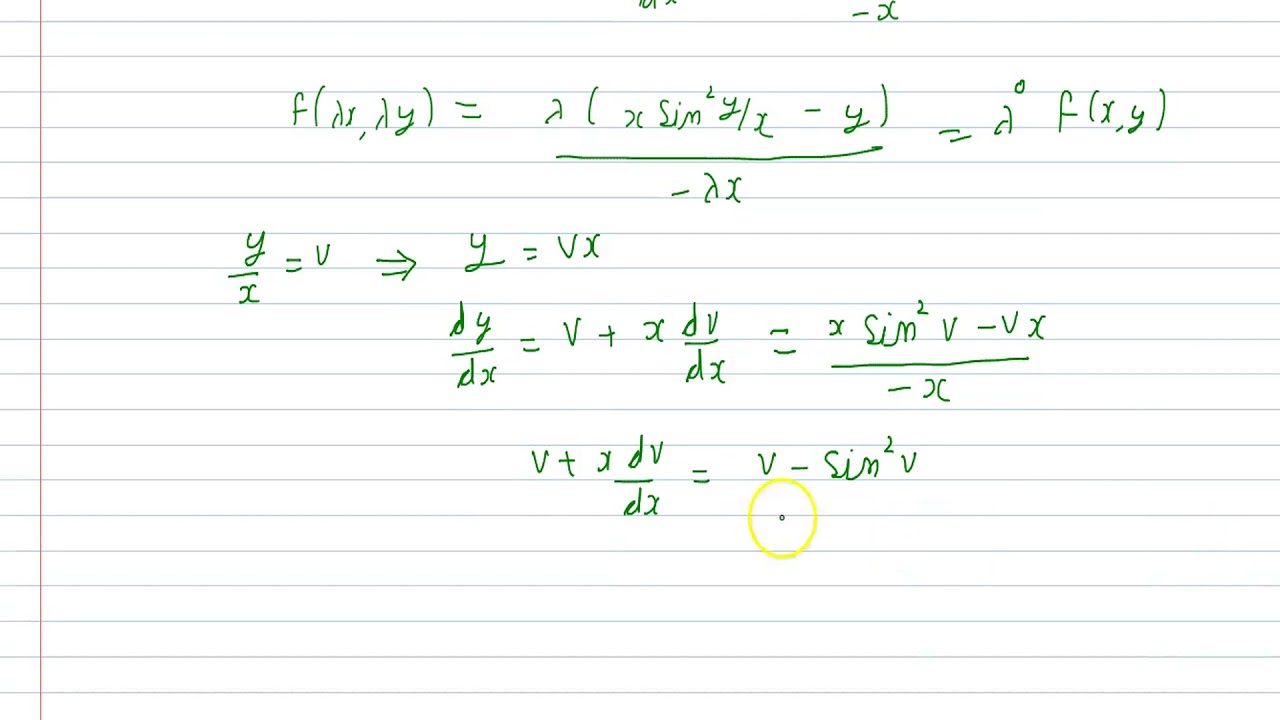 dx -x
f(λx, λy) = λ( x sin² y/x - y) / -λx = λ⁰ f(x, y)
y/x = v ⇒ y = vx
dy/dx = v + x dv/dx = x sin² v - vx / -x
v + x dv/dx = v - sin² v